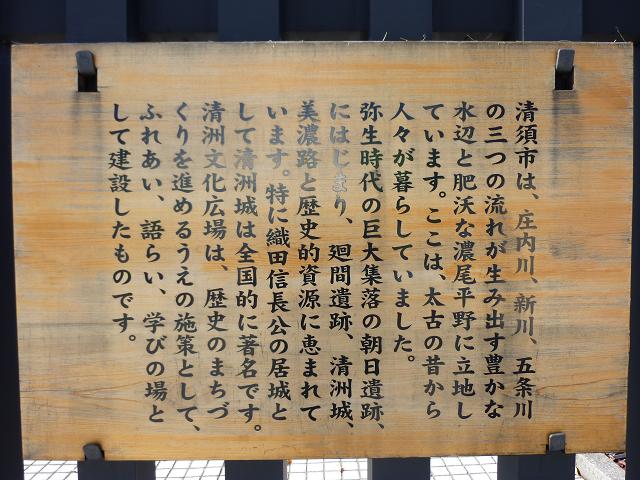 清須市は、庄内川、新川、五条川
の三つの流れが生み出す豊かな
水辺と肥沃な濃尾平野に立地し
ています。ここは、太古の昔から
人々が暮らしていました。
弥生時代の巨大集落の朝日遺跡、
にはじまり、廻間遺跡、清洲城、
美濃路と歴史的資源に恵まれて
います。特に織田信長公の居城と
して清洲城は全国的に著名です。
清洲文化広場は、歴史のまちづ
くりを進めるうえの施策として、
ふれあい、語らい、学びの場と
して建設したものです。